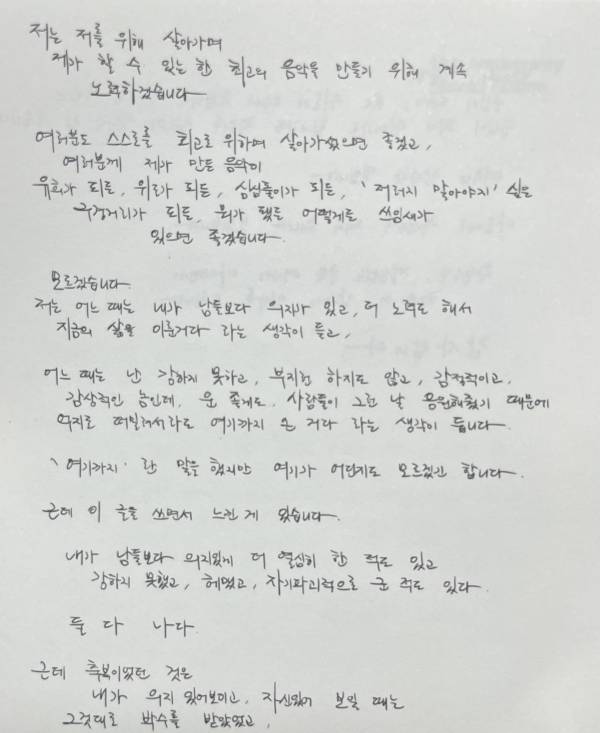 저는 저를 위해 살아가며
제가 할 수 있는 한 최고의 음악을 만들기 위해 계속
노력하겠습니다
여러분도 스스로를 최고로 위하며 살아가셨으면 좋겠고,
여러분께 제가 만든 음악이
유희가 되든, 위로가 되든, 심심풀이가 되든, '저러지 말아야지' 싶은
구경거리가 되든, 뭐가 됐든 어떻게든 쓰임새가
있으면 좋겠습니다.
모르겠습니다
저는 어느 때는 내가 남들보다 의지가 있고, 더 노력도 해서
지금의 삶을 이룬거다 라는 생각이 들고,
어느 때는 난 강하지 못하고, 부지런 하지도 않고, 감정적이고,
감상적인 놈인데, 운 좋게도, 사람들이 그런 날 응원해줬기 때문에
억지로 떠밀려서라도 여기까지 온 거다 라는 생각이 듭니다.
'여기까지' 란 말을 했지만 여기가 어딘지도 모르겠긴 합니다.
근데 이 글을 쓰면서 느낀 게 있습니다.
내가 남들보다 의지있게 더 열심히 한 적도 있고
강하지 못했고, 헤맸고, 자기파괴적으로 군 적도 있다.
둘 다 나다.
근데 축복이었던 것은
내가 의지 있어보이고, 자신있어 보일 때는
그것대로 박수를 받았었고,